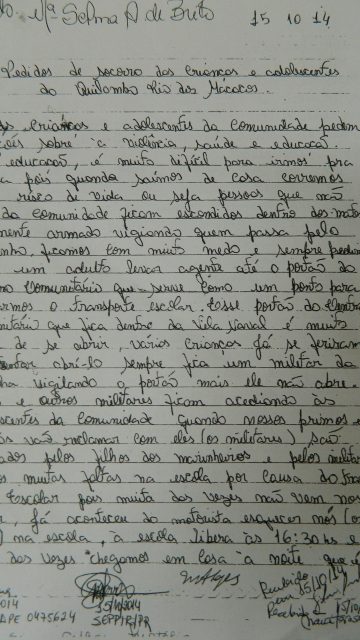 Mª Selma A de Brito 15 10 14
Pedidos de socorro das crianças e adolescentes
do Quilombo Rio dos Macacos.
crianças e adolescentes da comunidade pedem
sobre a violência, saúde e educação
educação, é muito difícil para irmos pra
pois quando saímos de casa corremos
risco de vida ou seja pessoas que não
da comunidade ficam escondidos dentro dos mato
armado vigiando quem passa pelo
ficamos com muito medo e sempre
um adulto levar agente até o portão do
Comunitário que serve como um ponto para
o transporte escolar. Esse portão do Centro
que fica dentro da Vila Naval é muito
de se abrir, varias crianças já se feriram
abri-lo sempre fica um militar da
vigilando o portão mais ele não abre.
e outros militares ficam acediando às
da comunidade quando nossos primos e
vão reclamar com eles (os militares) são
pelos filhos dos marinheiros e pelos
muitas faltas na escola por causa do
Escolar pois muita das vezes não vem nos
já aconteceu do motorista esquecer nós (
) na escola, a escola libera às 16:30 hs e
das vezes chegamos em casa à noite que é
2014
APE 0475624
15/10/2014
SEPPIR/PR
Recebido
em 15/10/14
Recebido